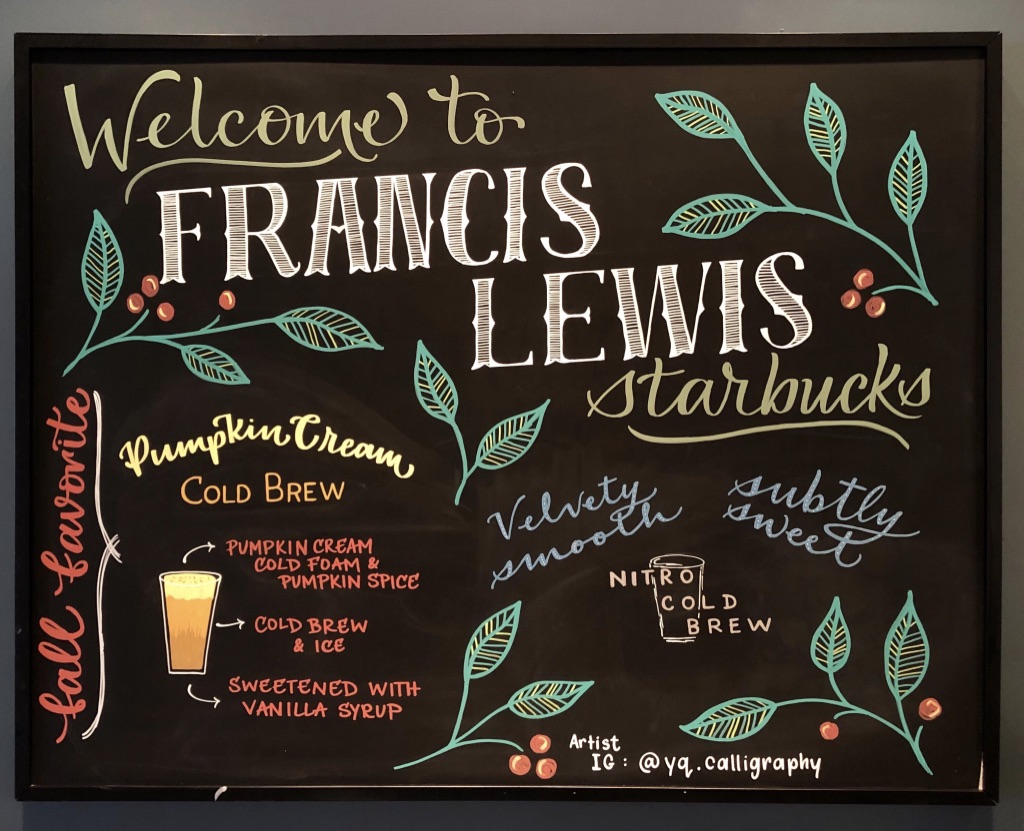 Welcome to
FRANCIS
LEWIS
starbucks
fall favorite
Pumpkin Cream
COLD BREW
PUMPKIN CREAM
COLD FOAM &
PUMPKIN SPICE
COLD BREW
& ICE
SWEETENED WITH
VANILLA SYRUP
Velvety
smooth
subtly
sweet
NITRO
COLD
BREW
Artist
IG : @yq.calligraphy